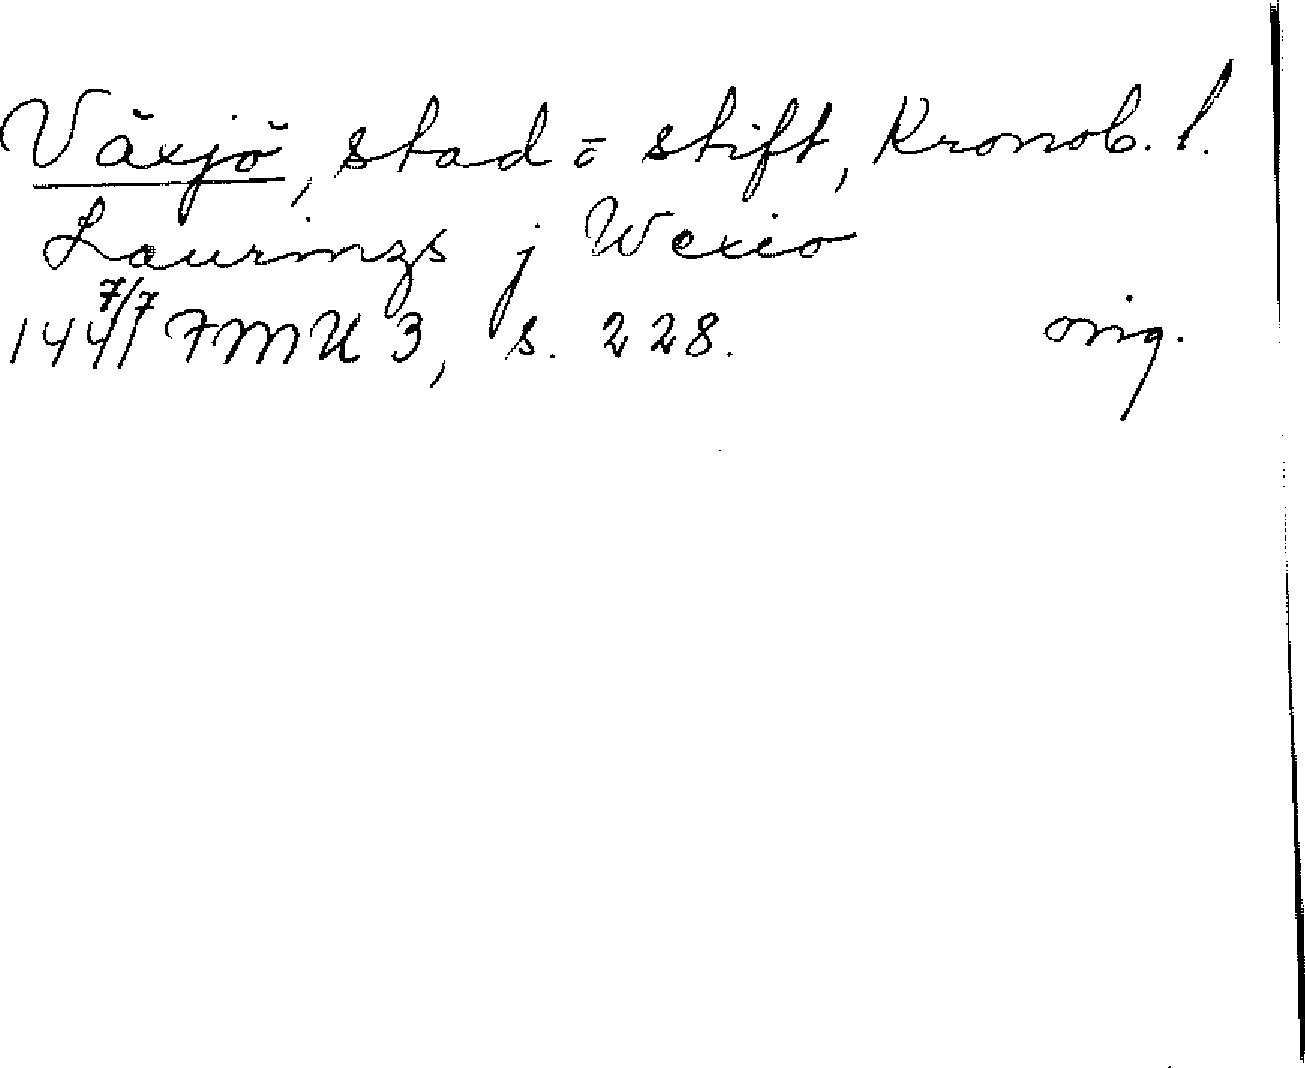 Växjö, stad o stift, Kronob. l.
Laurinzs j Wexio
1441 7/7 FMU 3, s. 228. orig.